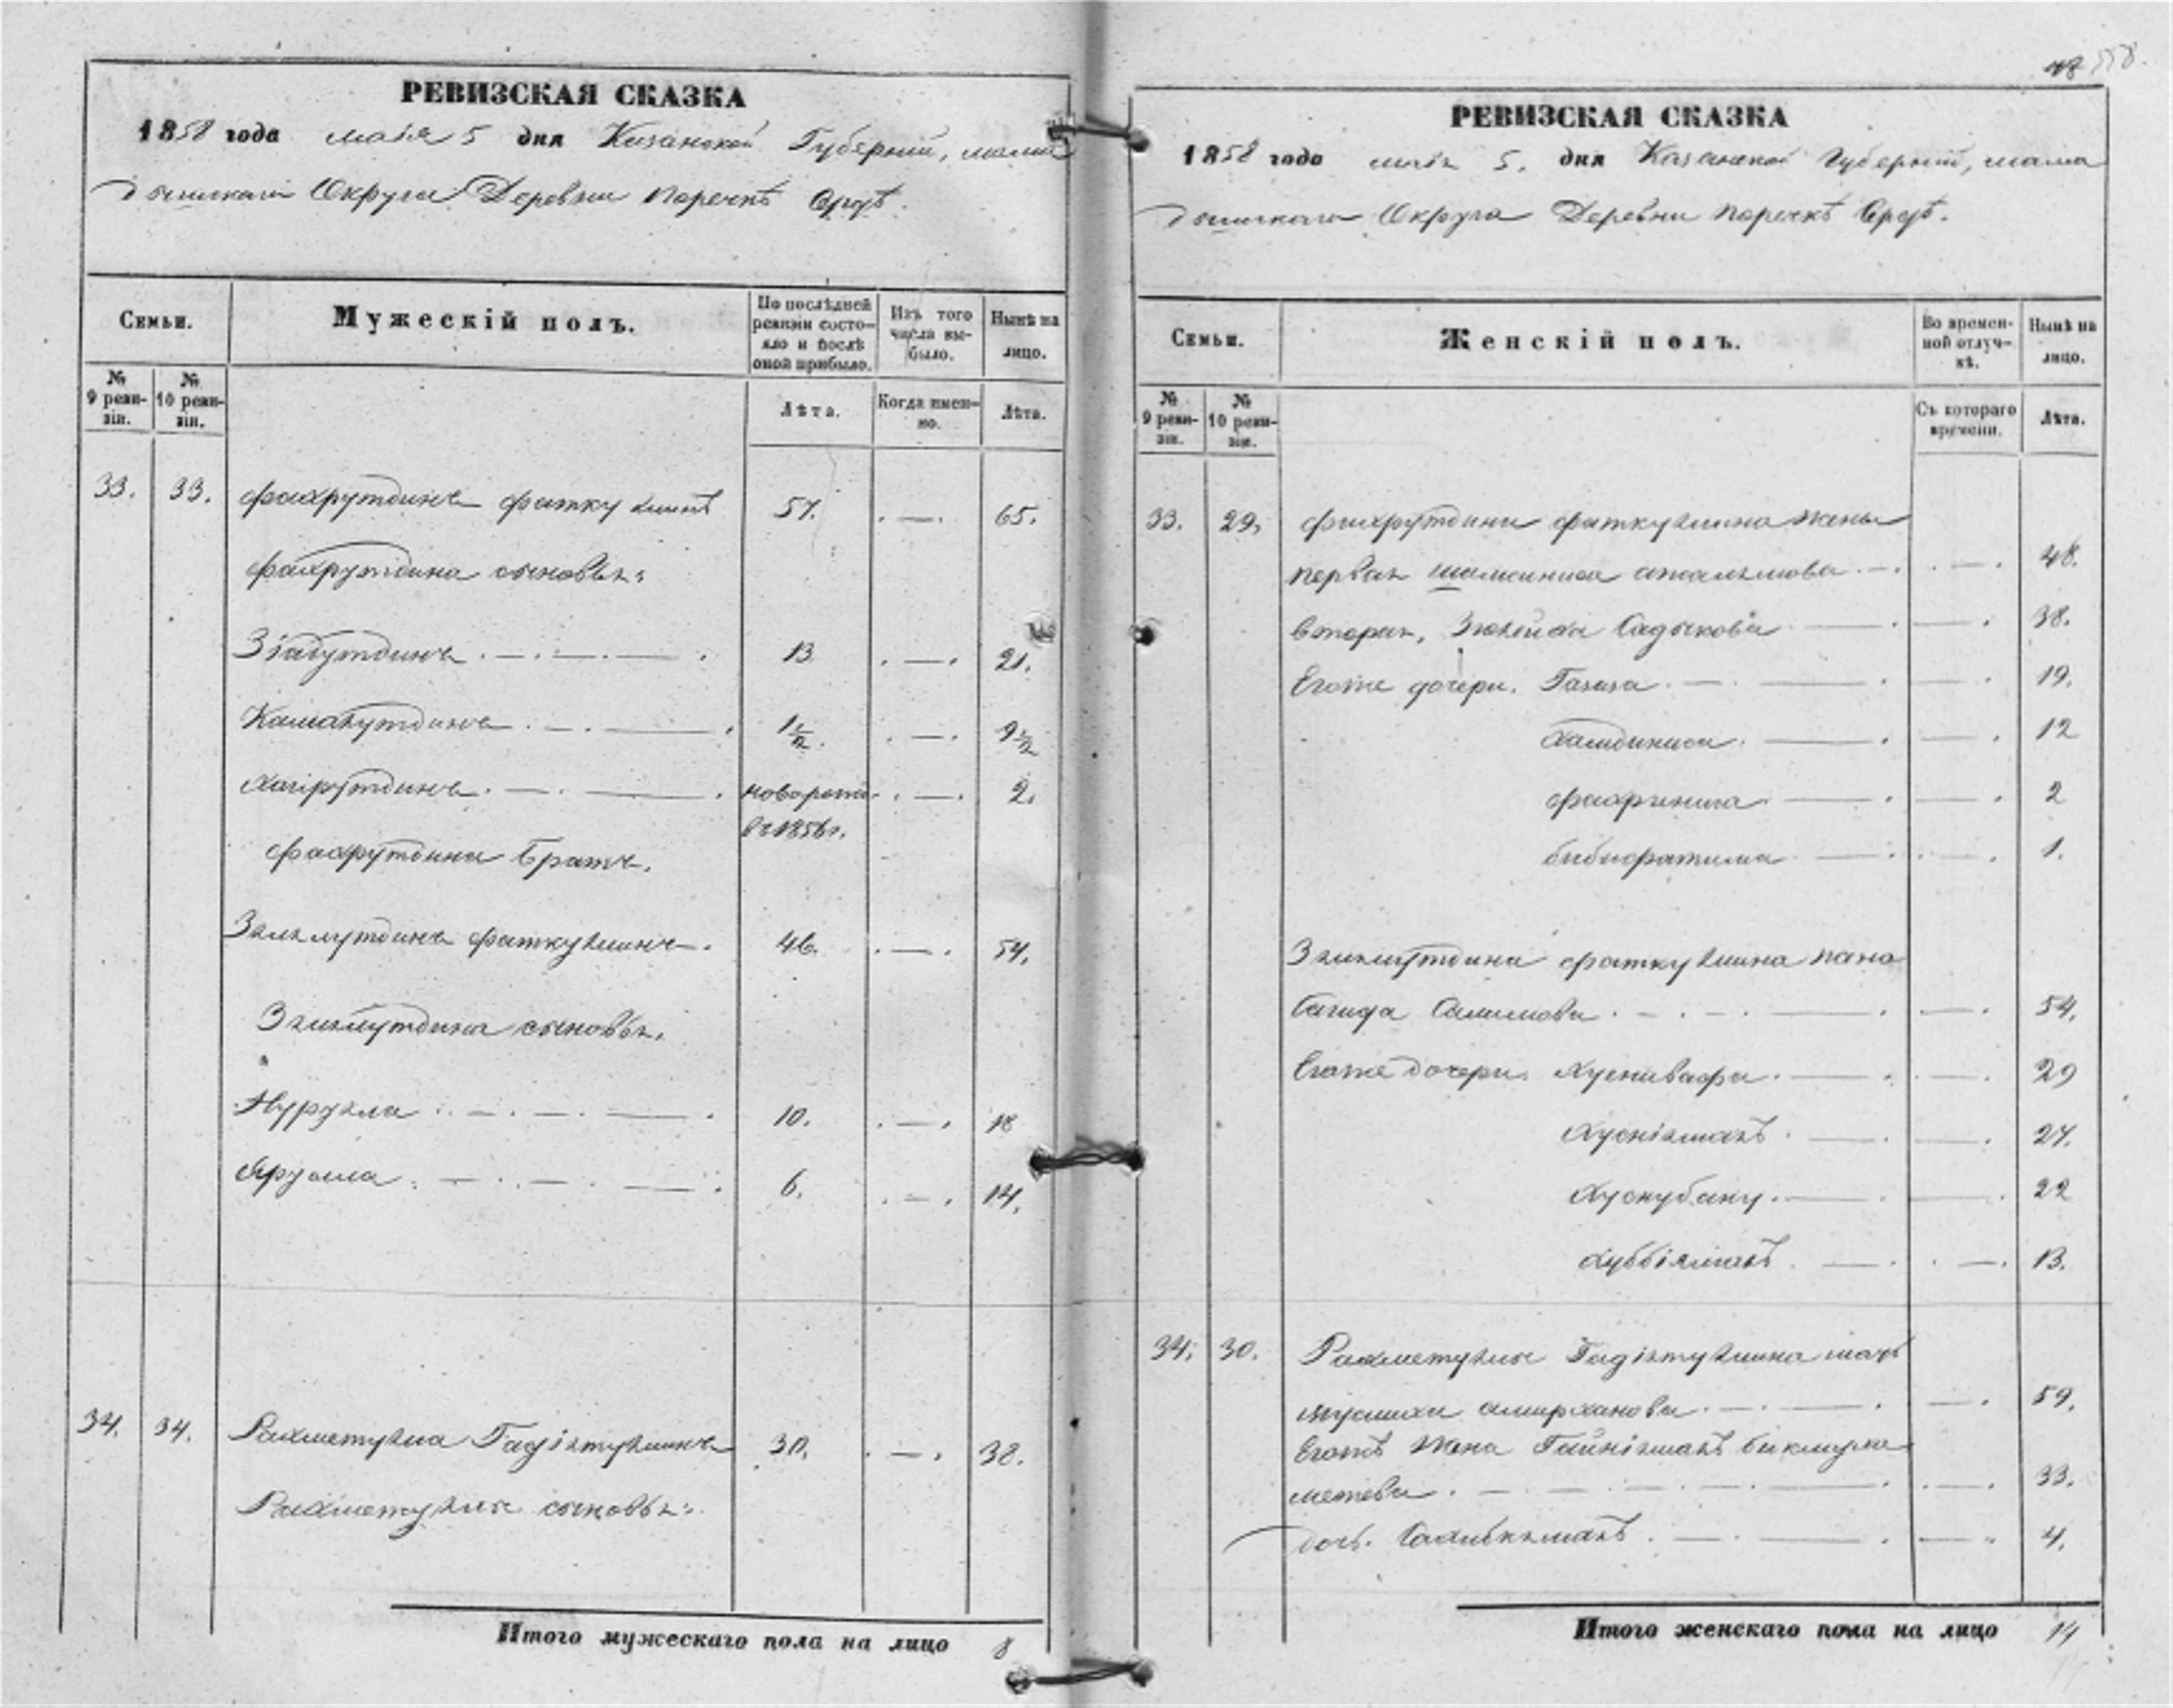 РЕВИЗСКАЯ СКАЗКА
1858 года мая 5 дня Казанской Губерніи, мама
дышскаго Округа Деревни
Семьи.
Мужескій полъ.
По послѣдней ревизіи состояло и послѣ оной прибыло.
Изъ того числа выбыло.
Нынѣ на лицо.
№ 9 ревизіи.
№ 10 ревизіи.
Лѣта.
Когда именно.
Лѣта.
33. 33. Фахрутдинъ Фаткуллинъ 57. 65.
Фахрутдина сыновья:
Зіятутдинъ 13 21.
Камалутдинъ 1 1/2. 9 1/2
Хайрутдинъ новорожд. 2.
въ 1856 г.
Фахрутдина братъ.
Залялутдинъ Фаткуллинъ. 46. 54.
сыновья.
Нурулла 10. 18
6. 14.
34. 34. Рахметулла Гадіятуллинъ 30. 38.
Рахметуллы сыновья:
Итого мужескаго пола на лицо 8
РЕВИЗСКАЯ СКАЗКА
1858 года мая 5. дня Казанской Губерніи, мама
дышскаго Округа Деревни
Семьи.
Женскій полъ.
Во временной отлучкѣ.
Нынѣ на лицо.
№ 9 ревизіи.
№ 10 ревизіи.
Съ котораго времени.
Лѣта.
33. 29. Фахрутдина Фаткуллина жены
первая 48.
вторая, Садыкова 38.
Егоже дочери. 19.
Хамдиниса. 12
2
Бибифатима 1.
Фаткуллина жена
Сагида Салимова 54.
Егоже дочери. Хуснивафа. 29
Хусніямалъ 27.
Хуснубану. 22
Хуббіямалъ 13.
34. 30. Рахметуллы Гадіятуллина мать
Амирханова 59.
Егожъ жена Гайніямалъ Бикмуха
метева. 33.
дочь. 4.
Итого женскаго пола на лицо 14